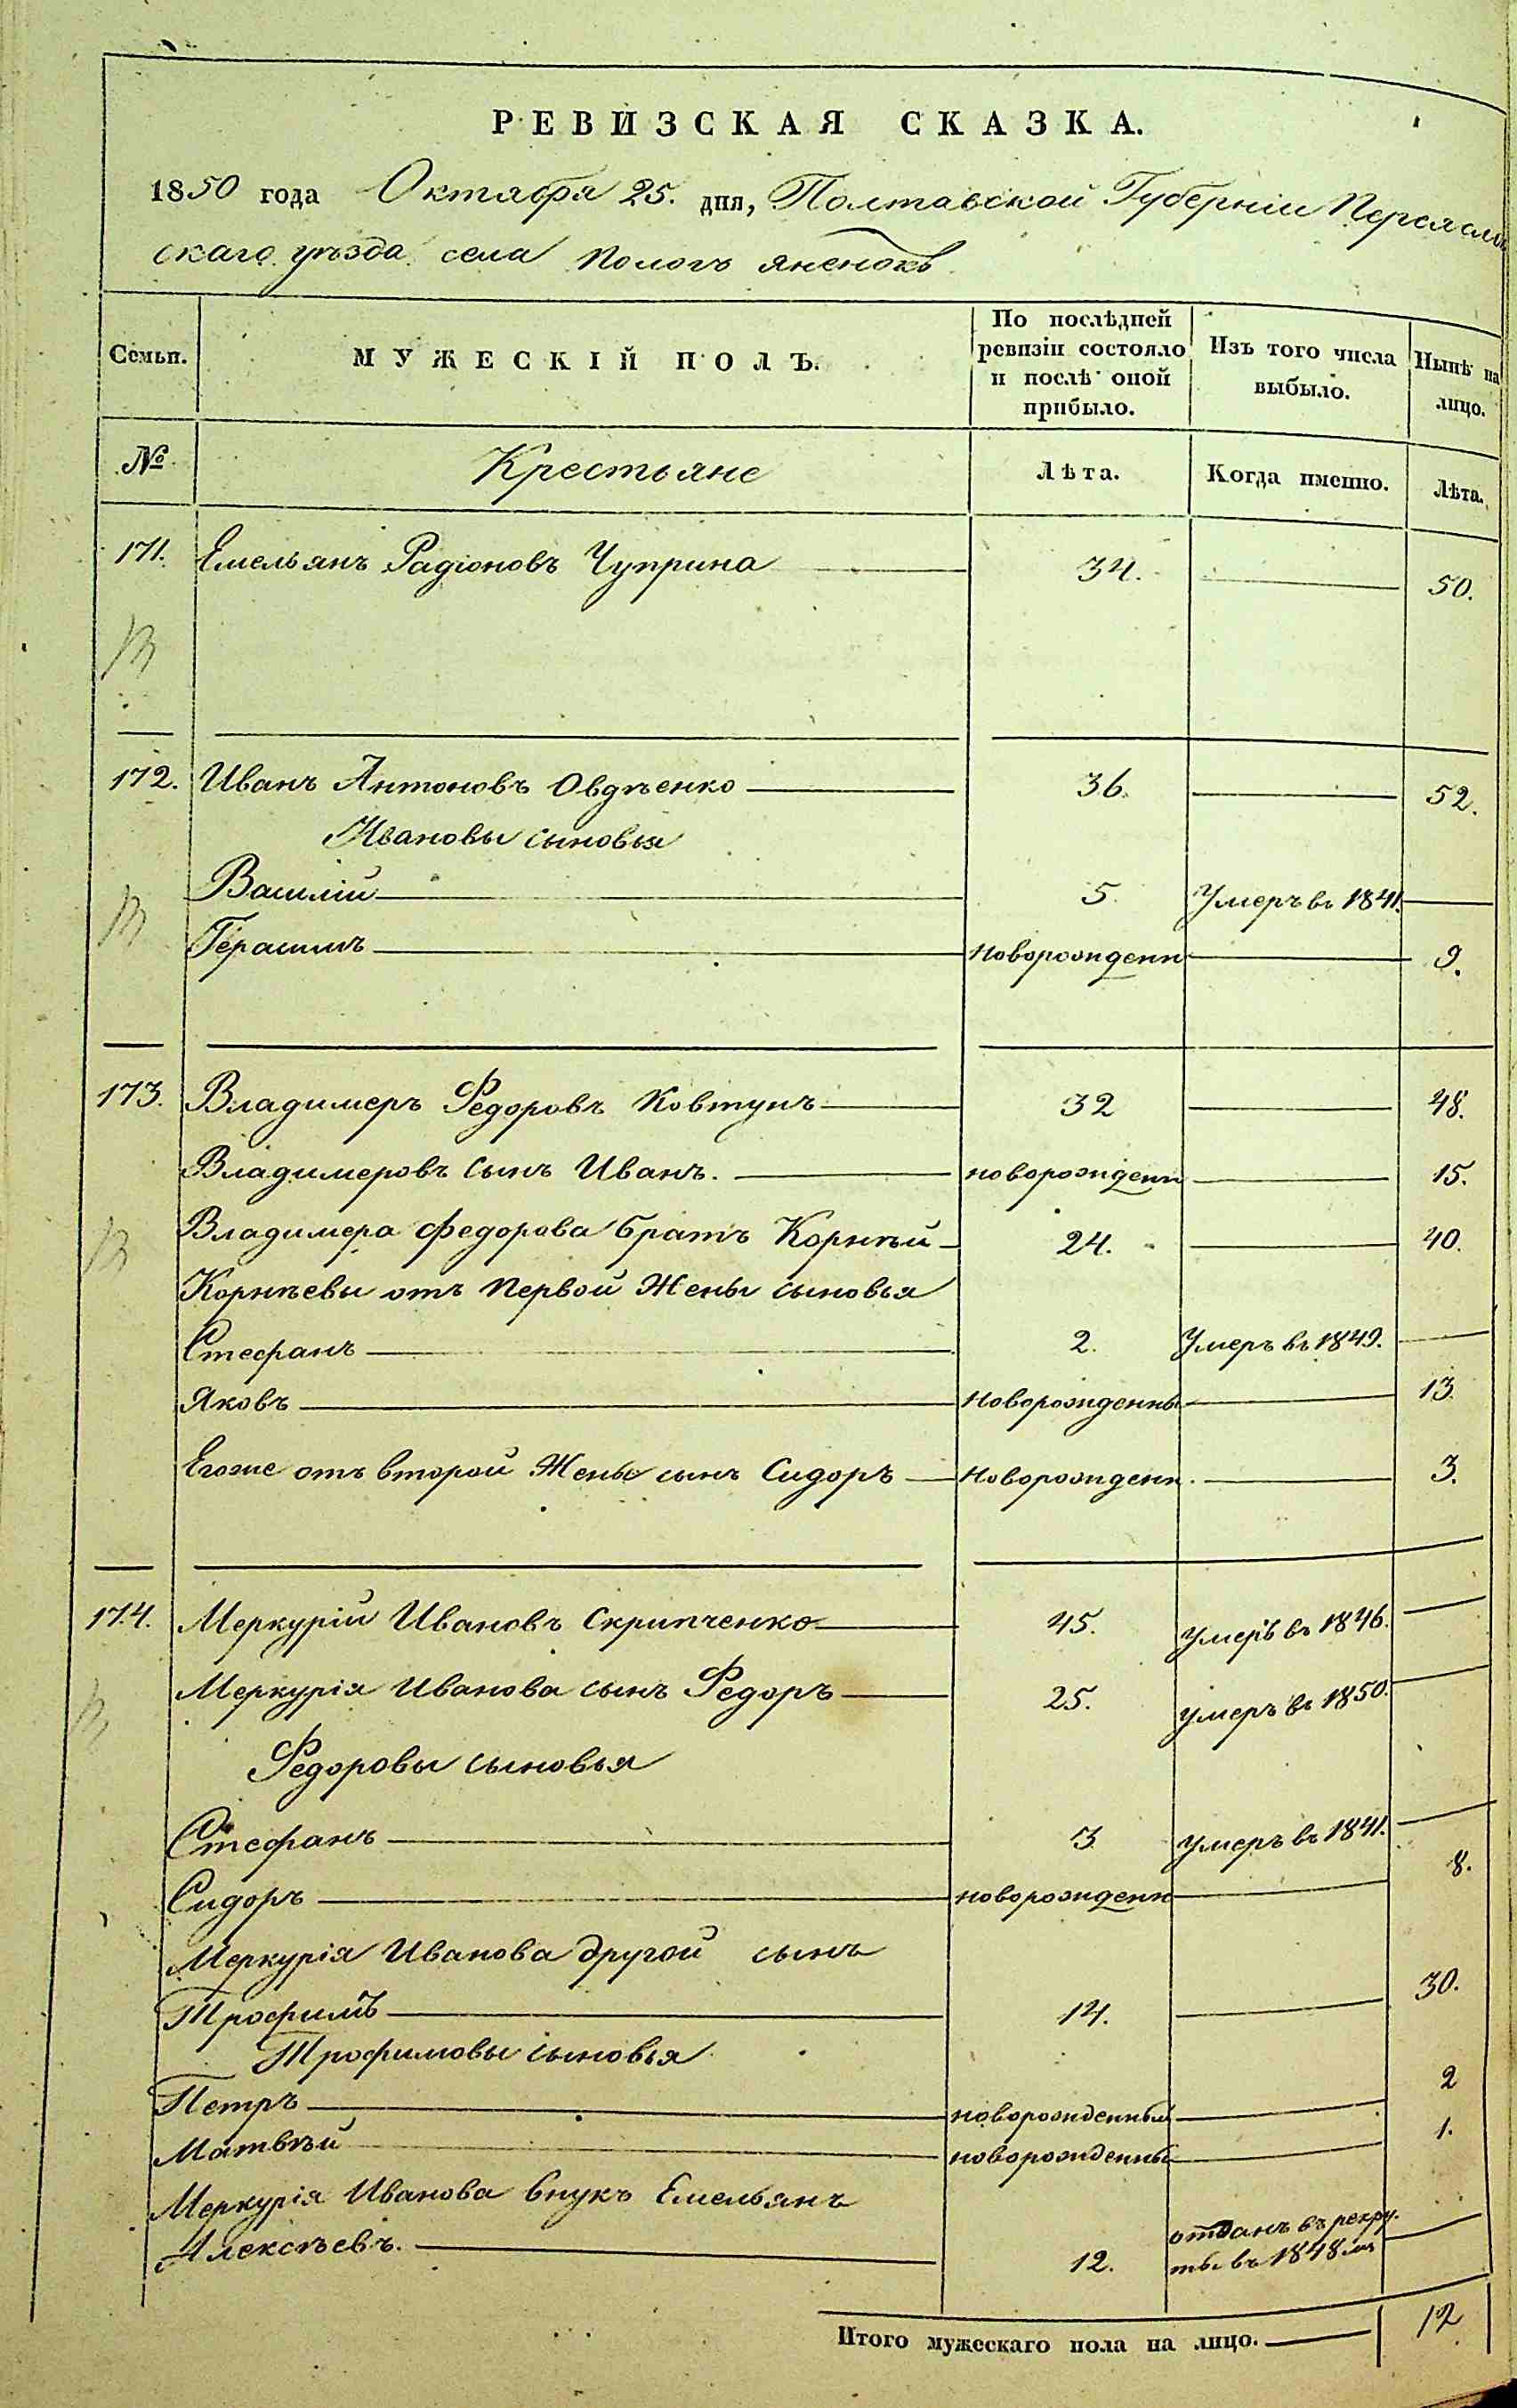 РЕВИЗСКАЯ СКАЗКА.
1850 года Октября 25. дня, Полтавской Губерніи Переясла
скаго уѣзда села Пологъ Яненокъ
Семьи. МУЖЕСКІЙ ПОЛЪ. По послѣдней ревизіи состояло и послѣ оной прибыло. Изъ того числа выбыло. Нынѣ на лицо.
№ Крестьяне Лѣта. Когда именно. Лѣта.
171. Емельянъ Радіоновъ Чуприна 34. 50.
172. Иванъ Антоновъ Овдѣенко 36. 52.
Ивановы сыновья
Василій 5. Умеръ въ 1841.
Герасимъ новорожденн 9.
173. Владимеръ Федоровъ Ковтунъ 32 48.
Владимеровъ сынъ Иванъ. новорожденн 15.
Владимера Федорова братъ Корнѣй 24. 40.
Корнѣевы отъ первой Жены сыновья
Стефанъ 2. Умеръ въ 1849.
Яковъ новорожденны 13.
Егоже отъ второй Жены сынъ Сидоръ новорожденн. 3.
174. Меркурій Ивановъ Скрипченко 45. умеръ въ 1846.
Меркурія Иванова сынъ Федоръ 25. умеръ въ 1850.
Федоровы сыновья
Стефанъ 3 умеръ въ 1841.
Сидоръ новорожденн 8.
Меркурія Иванова другой сынъ
Трофимъ 14. 30.
Трофимовы сыновья
Петръ новорожденный 2
Матвѣй новорожденны 1.
Меркурія Иванова внукъ Емельянъ
Алексѣевъ. 12. отданъ въ рекру-
ты въ 1848мъ
Итого мужескаго пола на лицо. 12